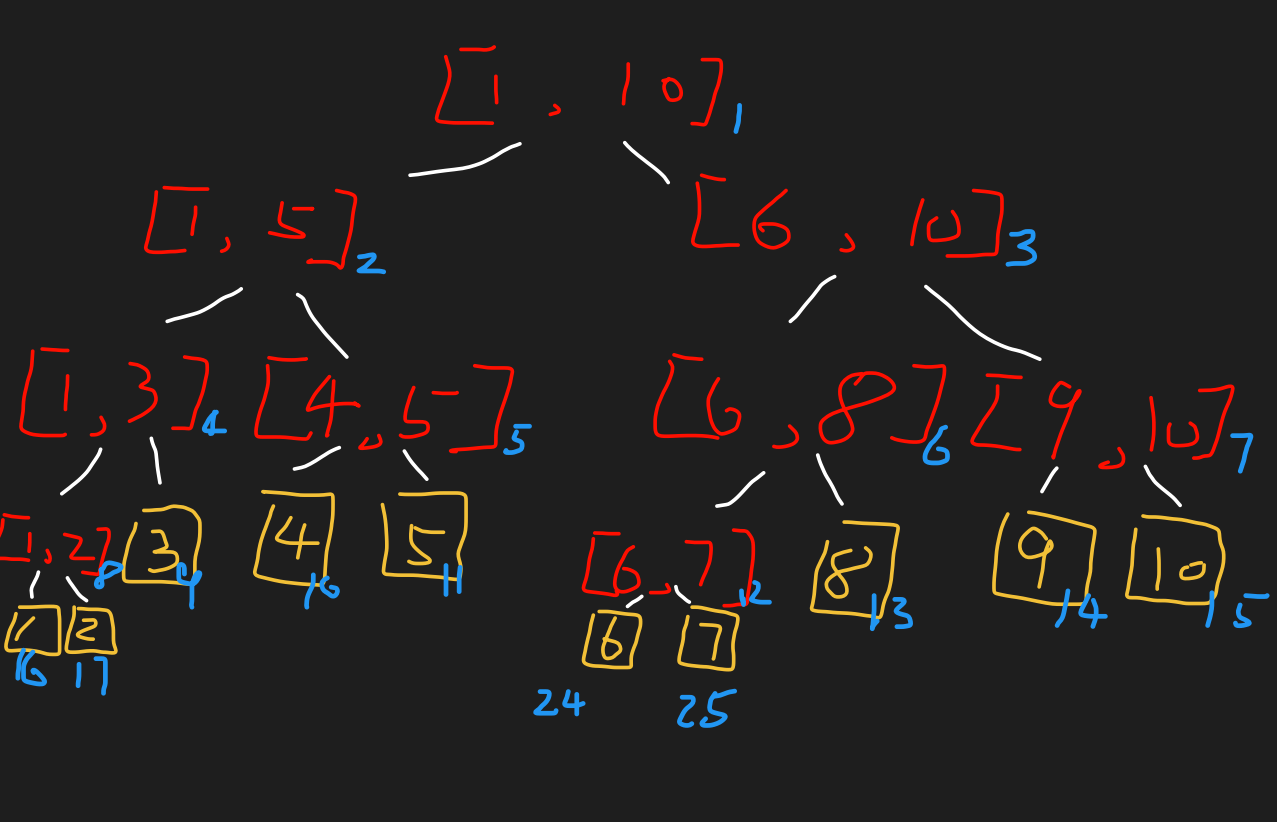 [1, 10] 1
[1, 5] 2 [6, 10] 3
[1, 3] 4 [4, 5] 5 [6, 8] 6 [9, 10] 7
[1, 2] 8 3 9 4 10 5 11 [6, 7] 12 8 13 9 14 10 15
1 2 6 7
16 17 24 25